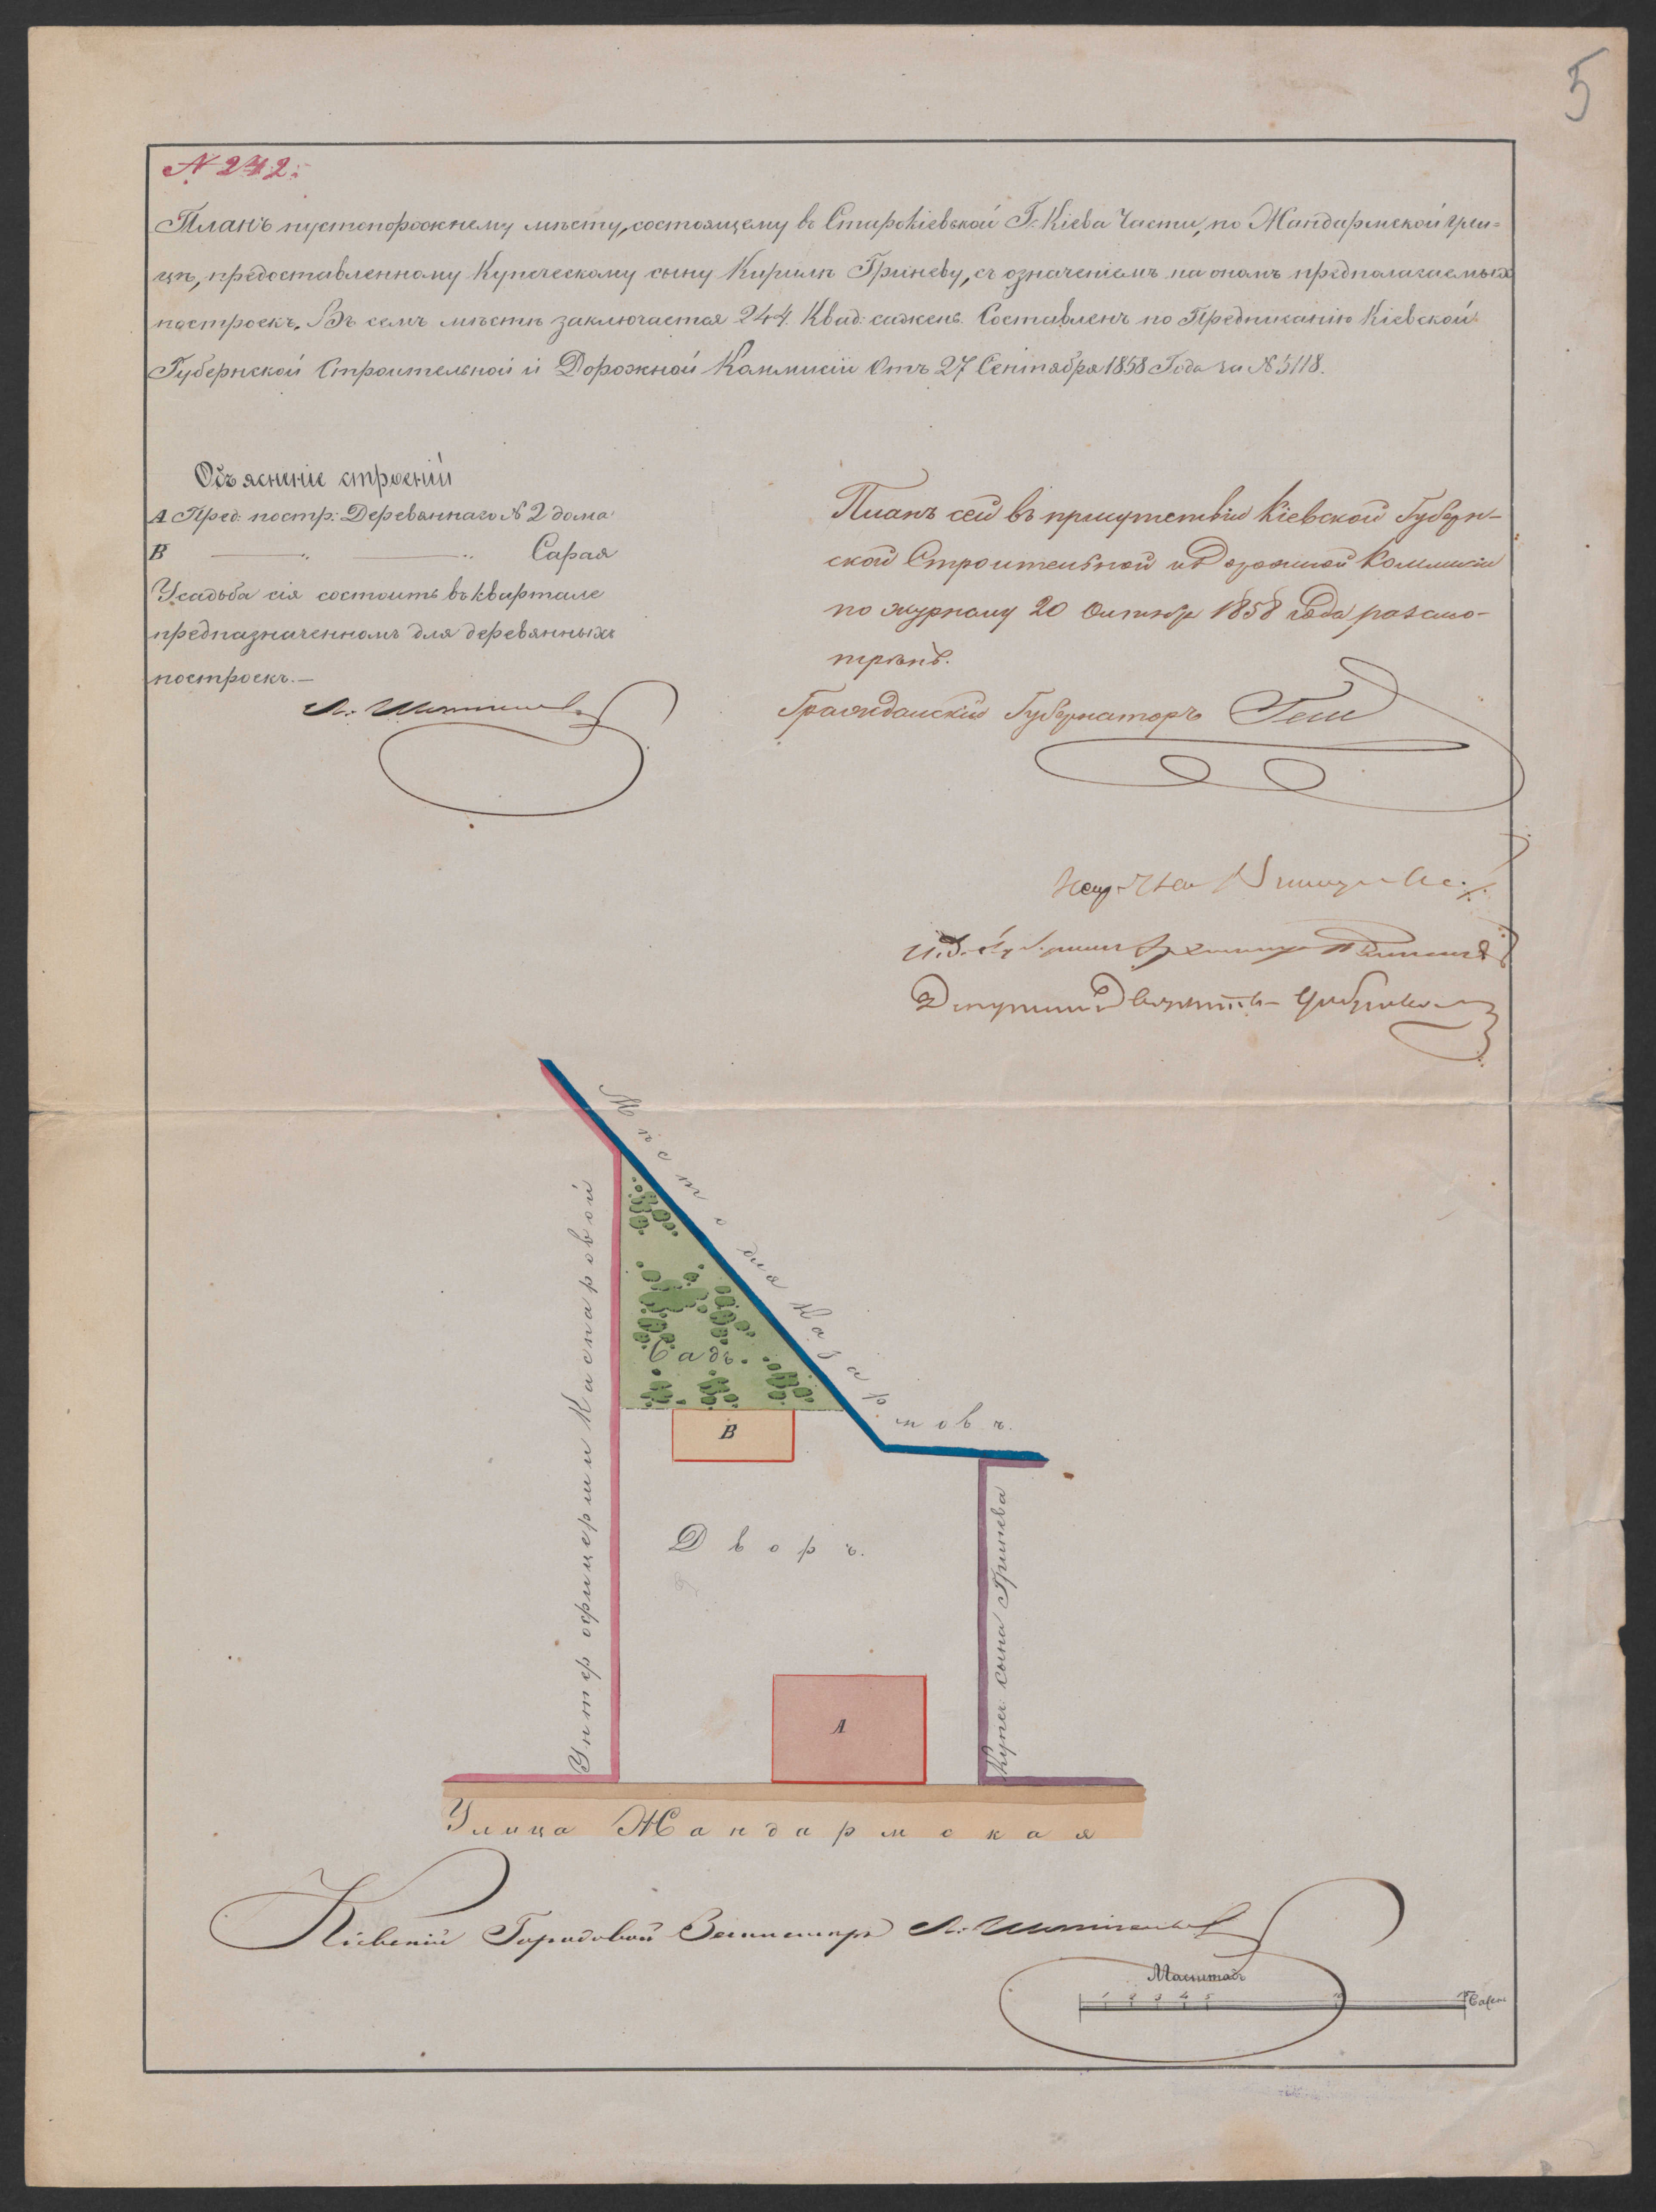 5
№ 242.
Планъ пустопорожнему мѣсту, состоящему въ Старокіевской Г. Кіева Части, по Жандармской ули=
цѣ, предоставленному Купеческому сыну Кирилѣ Гриневу, съ означеніемъ на ономъ предполагаемыхъ
построекъ. Въ семъ мѣстѣ заключается 244. Квад: сажень. Составленъ по Предписанію Кіевской
Губернской Строительной и Дорожной Коммисіи Отъ 27 Сентября 1858 Года за № 5118.
Объясненіе строеній
А Пред: постр: Деревяннаго № 2 дома
В —— „ —— „ Сарая
Усадьба сія состоитъ въ квартале
предназначенномъ для деревянныхъ
построекъ.—
Планъ сей въ присутствіи Кіевской Губерн-
ской Строительной и Дорожной Коммисіи
по журналу 20 Октября 1858 года разсмо-
трѣнъ.
Гражданскій Губернаторъ Гессе
И. д. Губ.
Депутатъ Дворянства
Мѣсто для Казар мовъ.
Унтер офицерши Каспаровой
Садъ.
В
Дворъ.
Купеч: сына Гринева
А
Улица Жандармская
Кіевскій Городовой
Масштабъ
1 2 3 4 5 10 15 Сажен